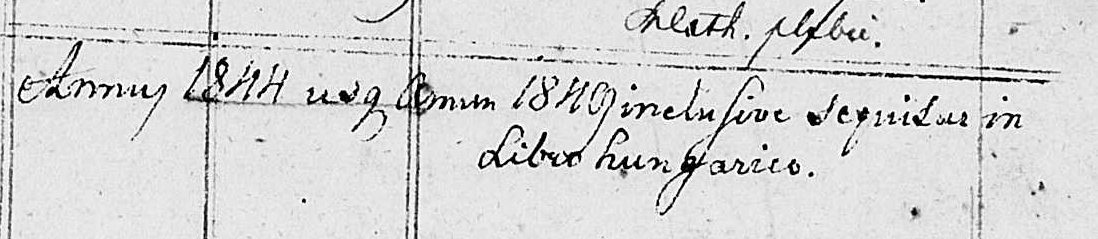 Math. plebii.
Annus 1844 usq Annum 1849 inclusive sequitur in
Libro hungarico.